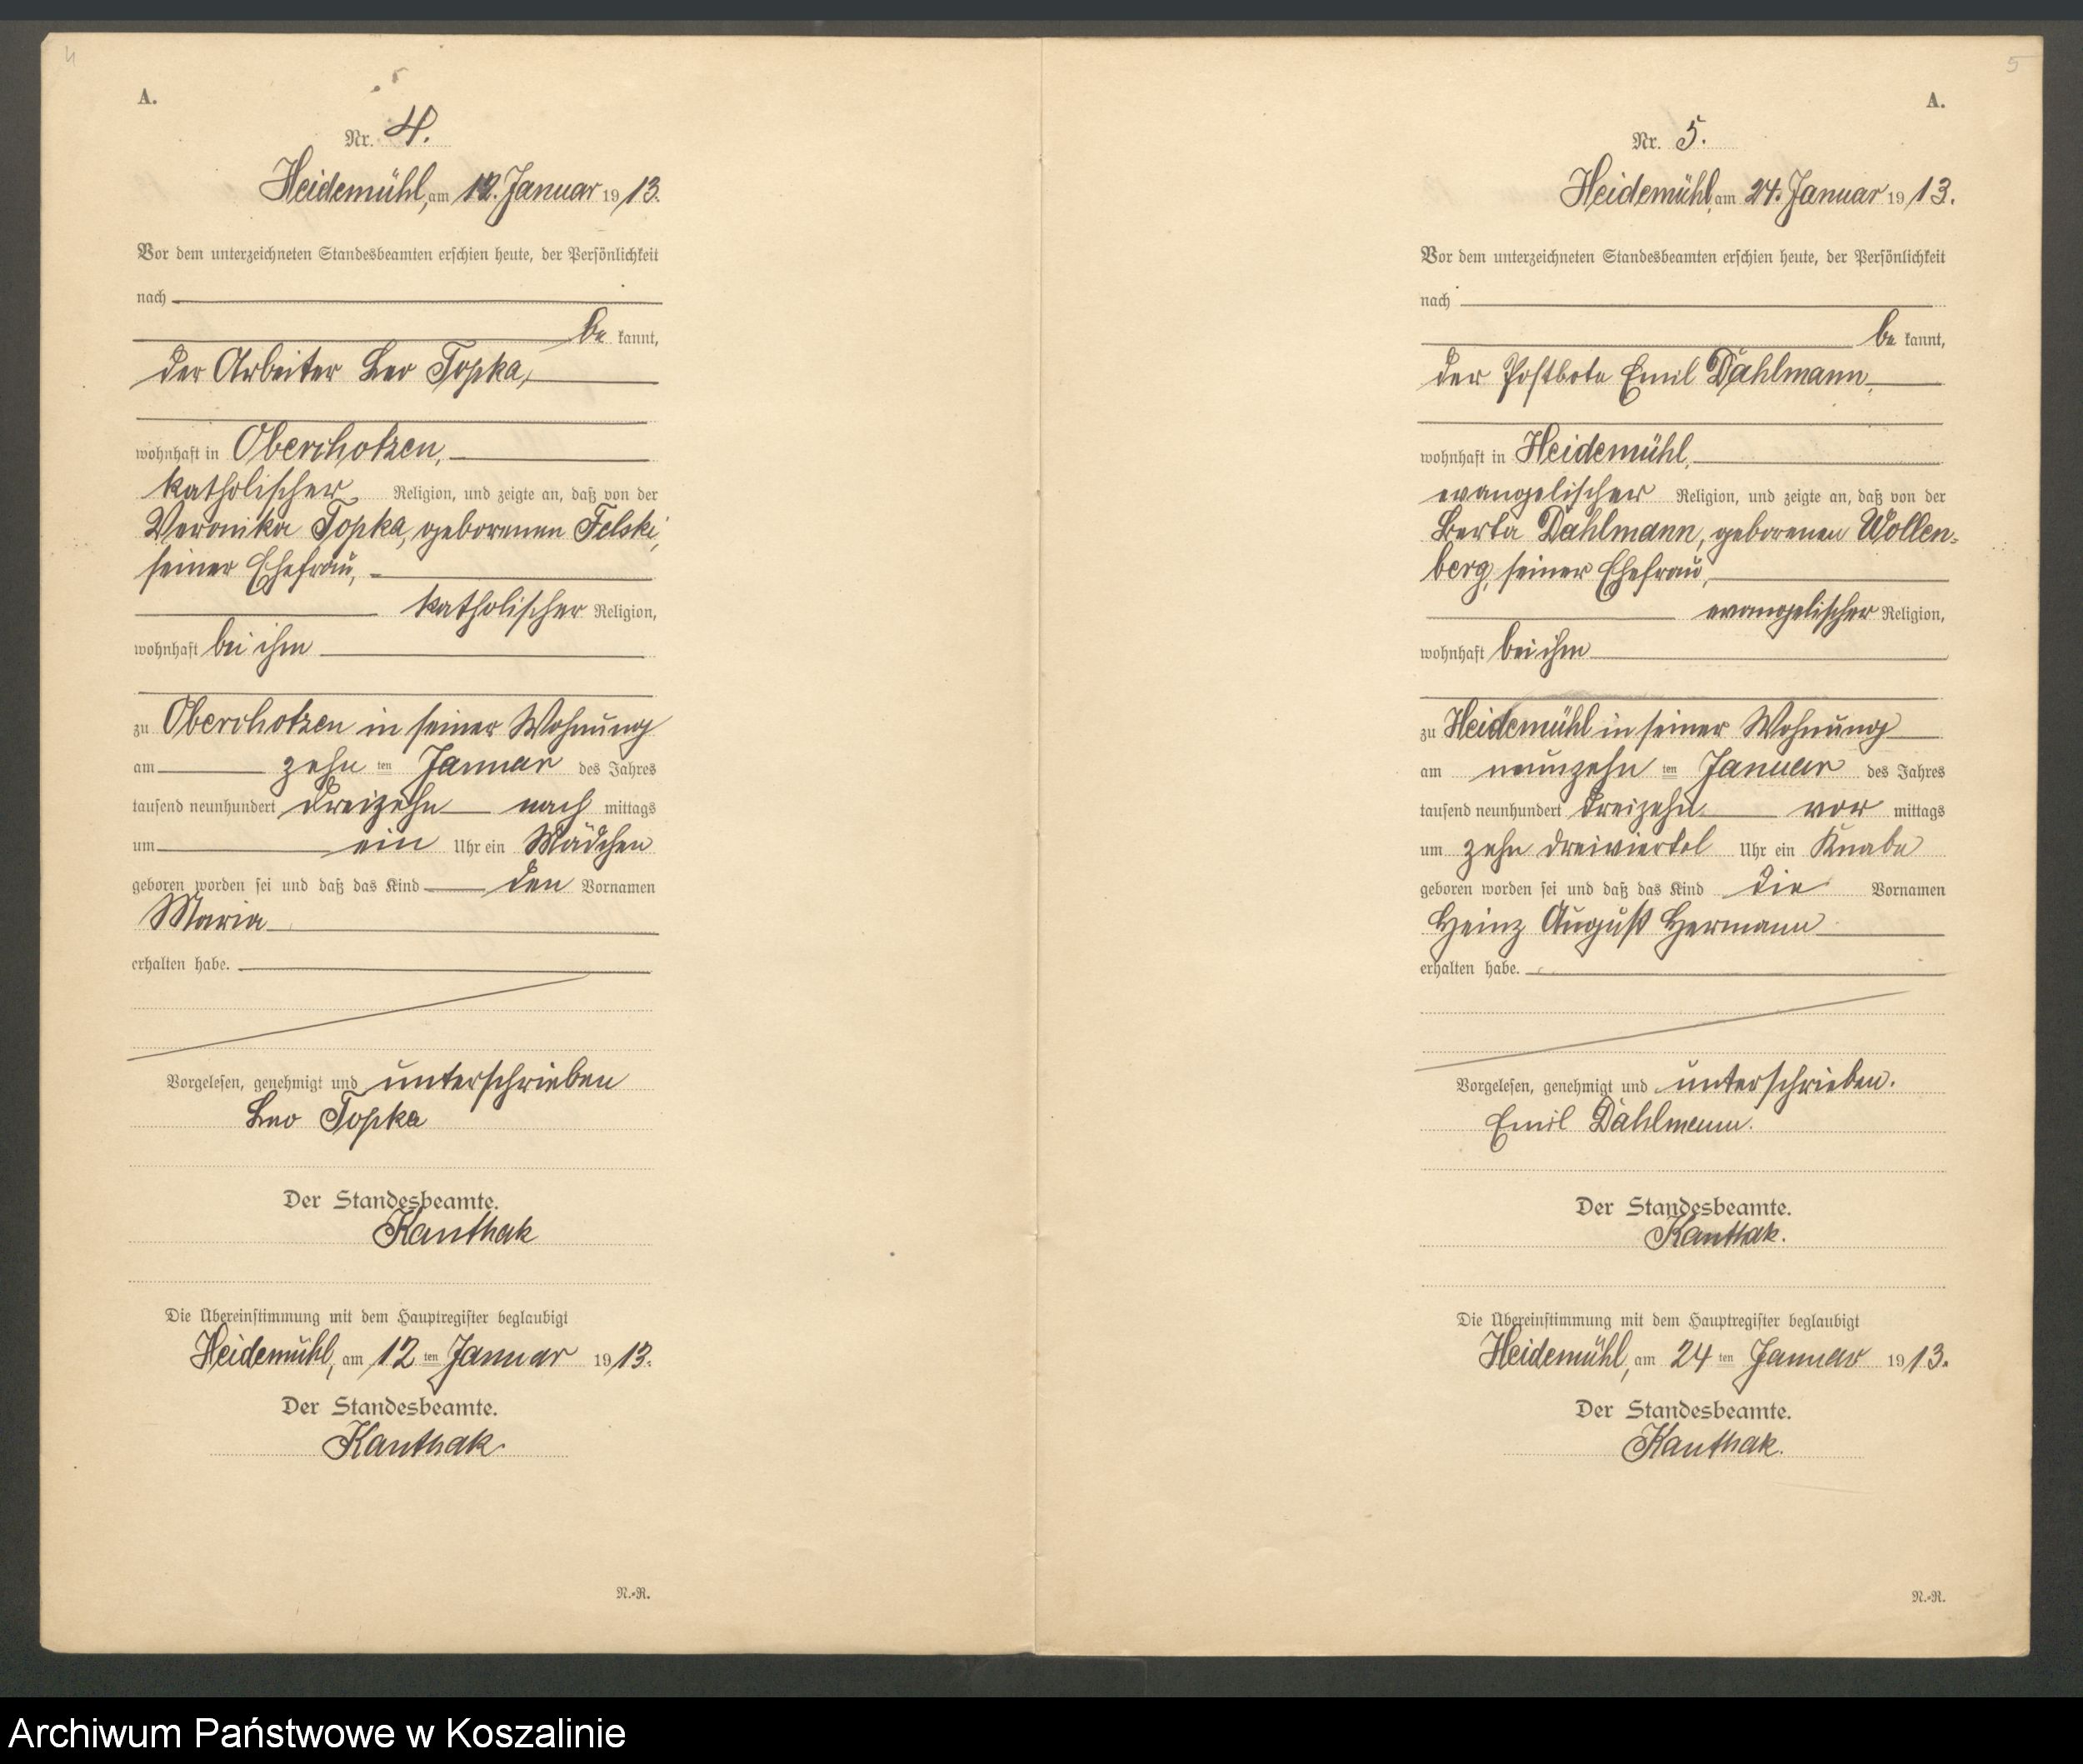 4
A.
Nr. 4.
Heidemühl, am 12. Januar 1913.
Vor dem unterzeichneten Standesbeamten erschien heute, der Persönlichkeit
nach
be kannt,
der Arbeiter Leo Topka,
wohnhaft in Oberchotzen,
katholischer Religion, und zeigte an, daß von der
Veronika Topka, geborenen Felski,
seiner Ehefrau,
katholischer Religion,
wohnhaft bei ihm
zu Oberchotzen in seiner Wohnung
am zehn ten Januar des Jahres
tausend neunhundert dreizehn nach mittags
um ein Uhr ein Mädchen
geboren worden sei und daß das Kind den Vornamen
Maria
erhalten habe.
Vorgelesen, genehmigt und unterschrieben
Leo Topka
Der Standesbeamte.
Kanthak
Die Übereinstimmung mit dem Hauptregister beglaubigt
Heidemühl, am 12 ten Januar 1913.
Der Standesbeamte.
Kanthak.
N.-R.
5
A.
Nr. 5.
Heidemühl, am 24. Januar 1913.
Vor dem unterzeichneten Standesbeamten erschien heute, der Persönlichkeit
nach
be kannt,
der Postbote Emil Dahlmann,
wohnhaft in Heidemühl,
evangelischer Religion, und zeigte an, daß von der
Berta Dahlmann, geborenen Wollen-
berg, seiner Ehefrau,
evangelischer Religion,
wohnhaft bei ihm
zu Heidemühl in seiner Wohnung
am neunzehn ten Januar des Jahres
tausend neunhundert dreizehn vor mittags
um zehn dreiviertel Uhr ein Knabe
geboren worden sei und daß das Kind die Vornamen
Heinz August Hermann
erhalten habe.
Vorgelesen, genehmigt und unterschrieben.
Emil Dahlmann.
Der Standesbeamte.
Kanthak.
Die Übereinstimmung mit dem Hauptregister beglaubigt
Heidemühl, am 24 ten Januar 1913.
Der Standesbeamte.
Kanthak.
N.-R.
Archiwum Państwowe w Koszalinie